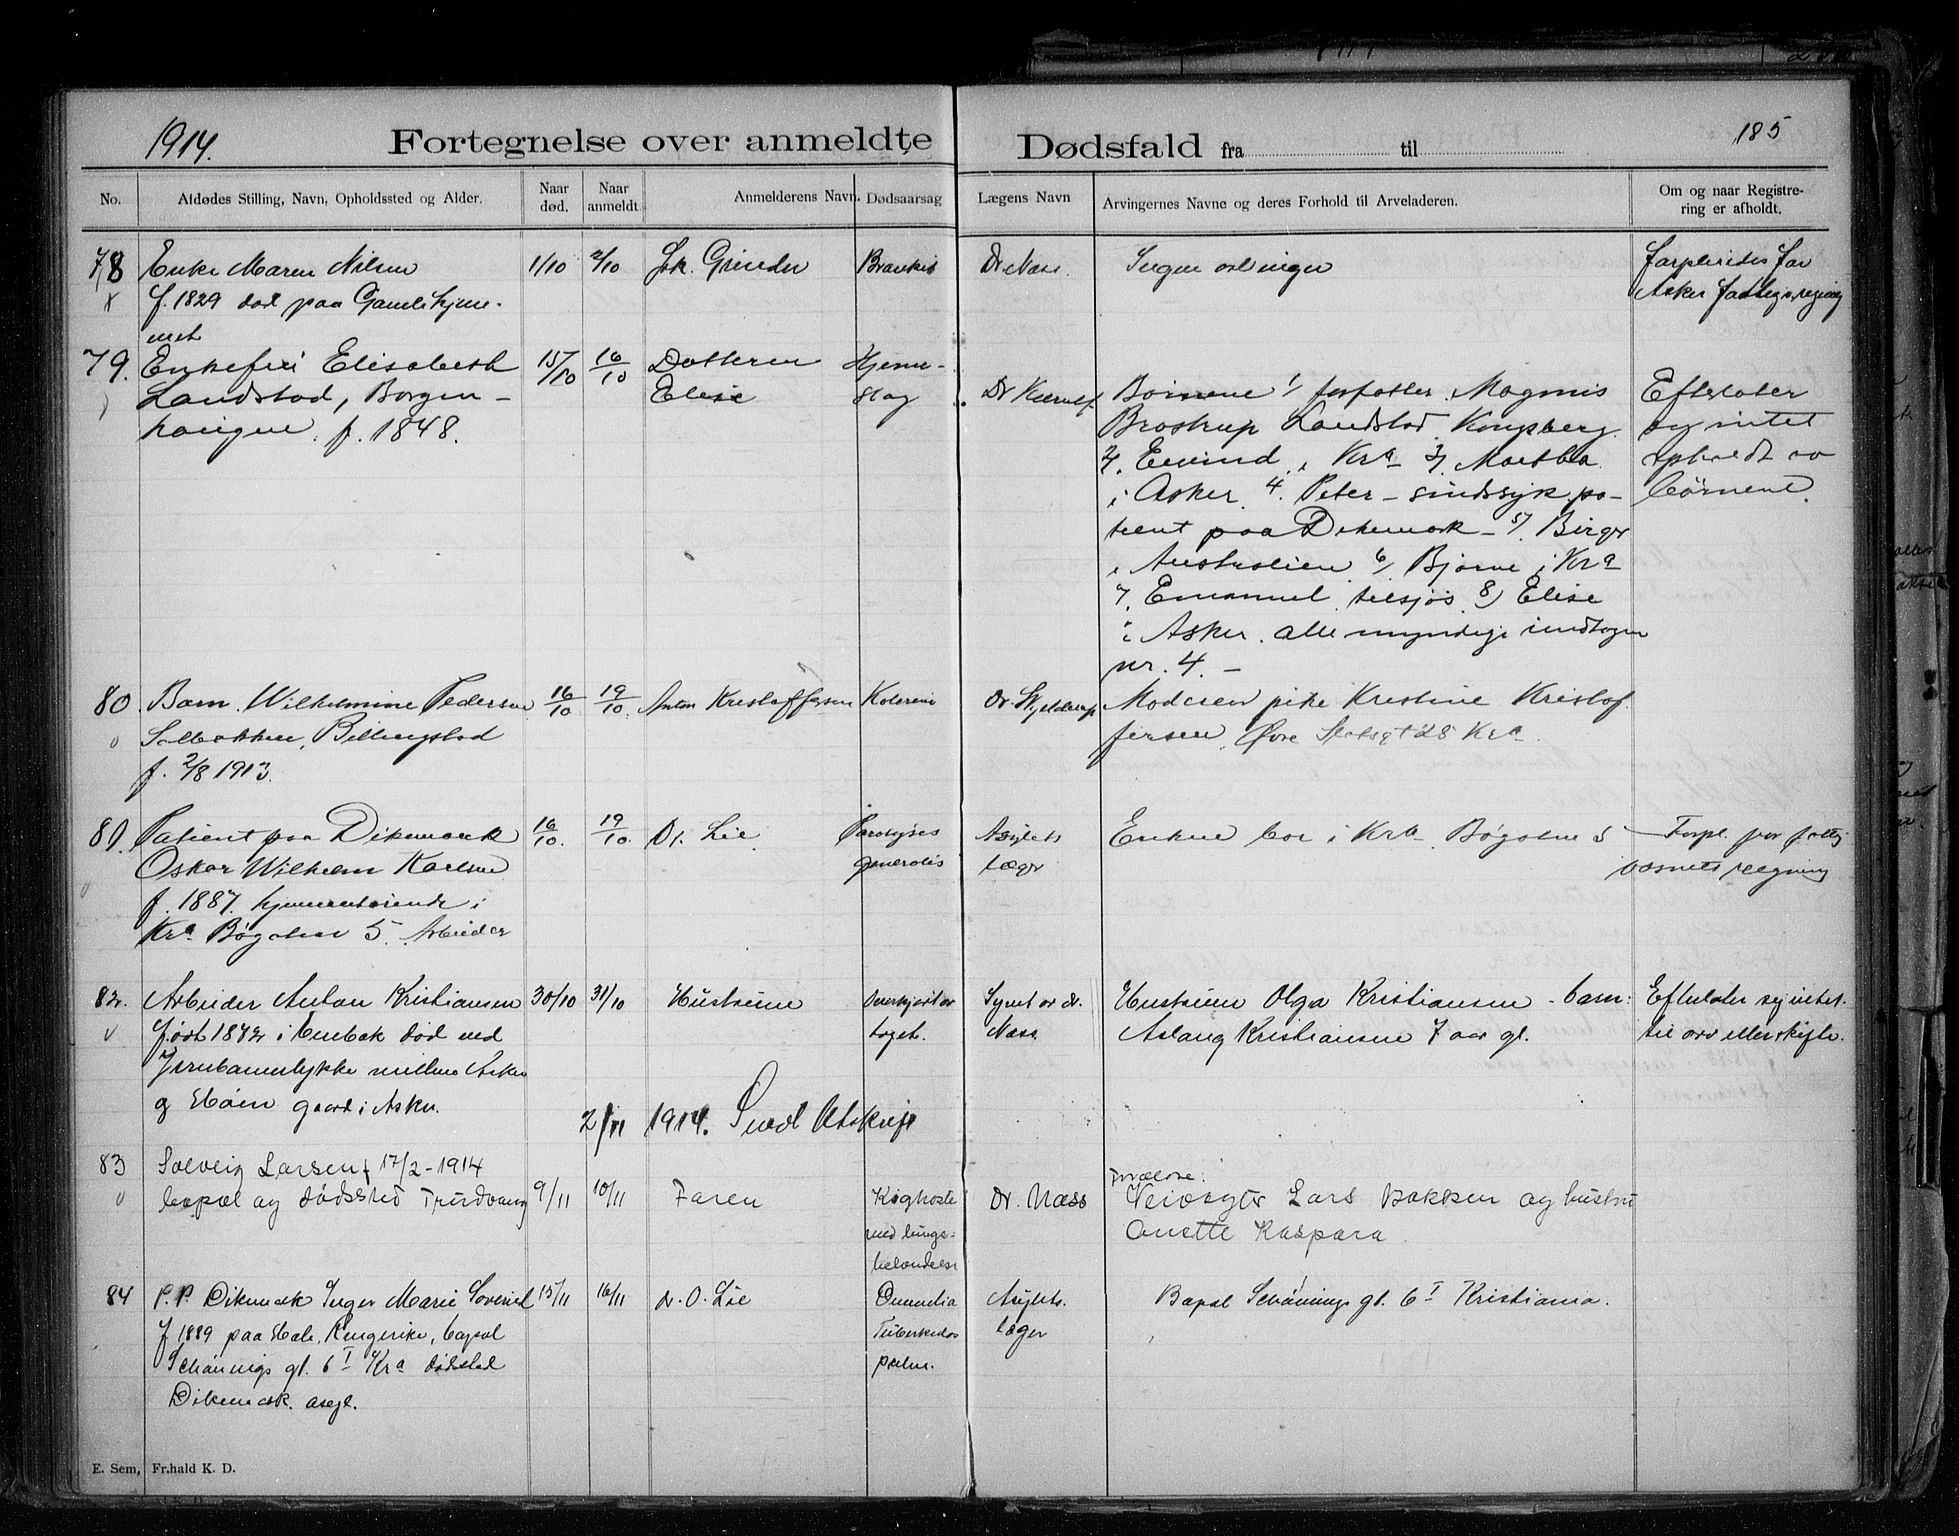 1914.
Fortegnelse over anmeldte
Dødsfald fra til
185
No.
Afdødes Stilling, Navn, Opholdssted og Alder.
Naar død.
Naar anmeldt
Anmelderens Navn.
Dødsaarsag
Lægens Navn
Arvingernes Navne og deres Forhold til Arveladeren.
Om og naar Registre-
ring er afholdt.
78 Enke Maren Nilsen 1/10 2/10 Lh. Grinder Dr Næss. Ingen arvinger
f. 1829 død paa Gamlehjem-
met
Asker
79. Enkefru Elisabeth 15/10 16/10 Datteren Hjerne-
Landstad, Borgen- Elise slag
haugen. f. 1848.
Dr
Børnene 1/ forfatter Magnus
Brostrup Landstad Kongsberg
2/. Eivind, i Kra 3/ Martha
i Asker. 4. Peter - sindssyk pa-
tient paa Dikemark - 5/. Birger
i Australien 6/ Bjarne i Kra
7. Emanuel tilsjøs 8) Elise
i Asker. alle myndige undtagen
nr. 4. -
Efterlater
sig intet
opholdt av
børnene.
80 Barn Wilhelmine Pedersen 16/10 19/10 Anton Kristoffersen Dr. Skjelderup Moderen pike Kristine Kristof
Solbakken, Billingstad fersen, Øvre Slotsgt 28 Kra
f. 2/8 1913.
81. Patient paa Dikemark 16/10. 19/10 Dr. Lie Paralyses Asylets Enken bor i Kra Bøgaten 5 Forpl. paa fattig
Oskar Wilhelm Karlsen generalis læger væsnets regning
f. 1887. hjemmehørende i
Kra Bøgaten 5. Arbeider
82. Arbeider Anton Kristiansen 30/10 31/10 Hustruen Overkjørt av Synet av dr. Hustruen Olga Kristiansen - barn: Efterlater sig intet
født 1872 i Enebak død ved toget. Næss. Aslaug Kristiansen 7 aar gl. til arv eller skifte.
Jernbanelykke mellem Asker
og Høen gaard i Asker.
2/11 1914. Sendt Utskrift
83 Solveig Larsen f 17/2-1914
bopæl og dødssted Trudvang 9/11 10/11 Faren Kighoste Dr. Næss Forældre:
med lungebetændelse Veivogter Lars Bakken og hustru
Anette Kaspara
84 P.P. Dikemark Inger Marie 15/11 16/11 dr. O. Lie Dementia Asylets Bopæl Schönings gt. 6 I Kristiania.
f 1889 paa Hole, Ringerike, bopæl læger
Schönings gt. 6 I Kra dødssted
Dikemark asyl.
E. Sem, Fr.hald K. D.